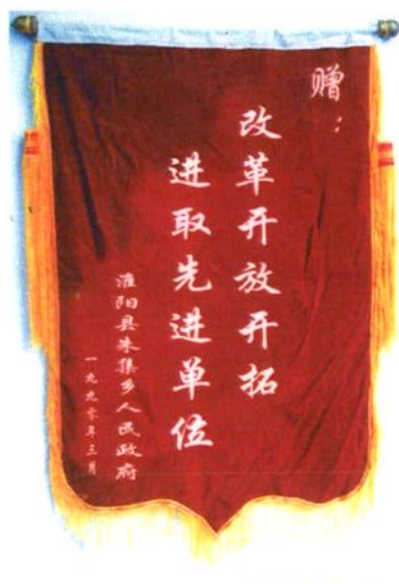 赠：
改革开放开拓
进取先进单位
淮阳县朱集乡人民政府
一九九零年三月